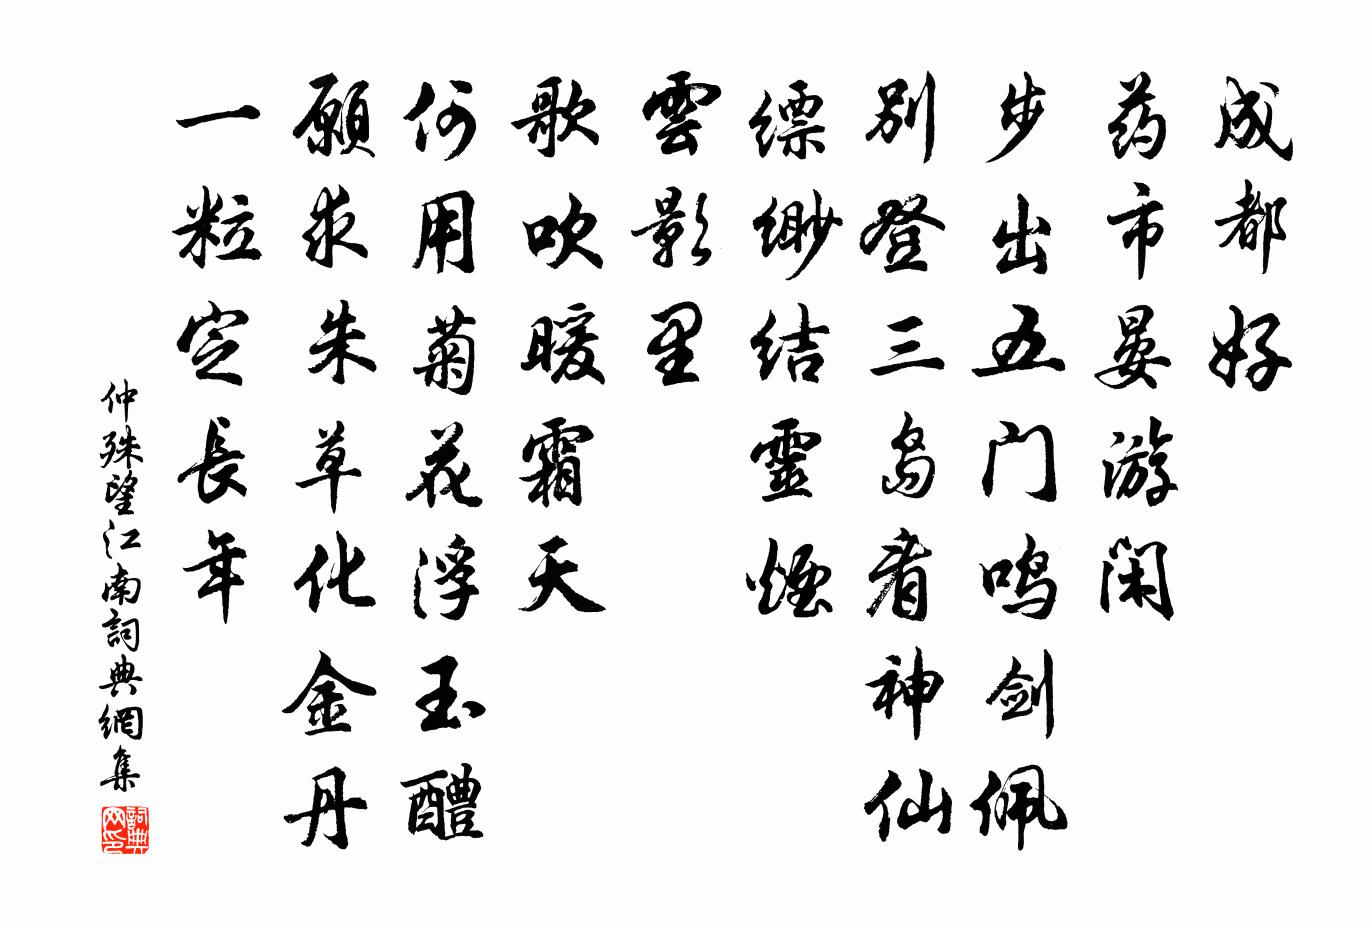 成都好
药市晏游闲
步出五门鸣剑佩
别登三岛看神仙
缥缈结靈煙
雲影里
歌吹暖霜天
何用菊花浮玉醴
願求朱草化金丹
一粒定長年
仲殊望江南詞典網集
詞典网印